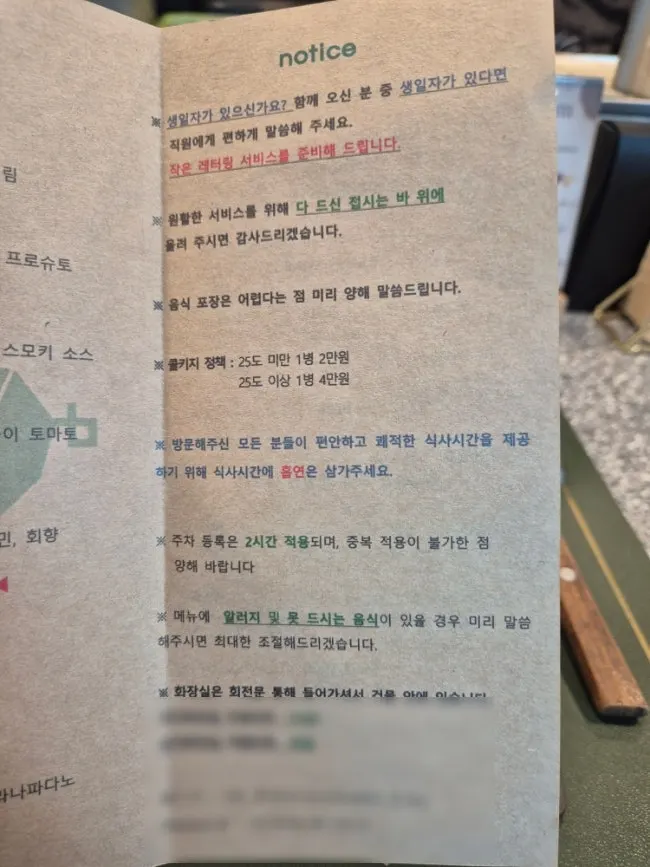 notice
※ 생일자가 있으신가요? 함께 오신 분 중 생일자가 있다면
직원에게 편하게 말씀해 주세요.
작은 레터링 서비스를 준비해 드립니다.
※ 원활한 서비스를 위해 다 드신 접시는 바 위에
올려 주시면 감사드리겠습니다.
※ 음식 포장은 어렵다는 점 미리 양해 말씀드립니다.
※ 콜키지 정책 : 25도 미만 1병 2만원
25도 이상 1병 4만원
※ 방문해주신 모든 분들이 편안하고 쾌적한 식사시간을 제공
하기 위해 식사시간에 흡연은 삼가주세요.
※ 주차 등록은 2시간 적용되며, 중복 적용이 불가한 점
양해 바랍니다
※ 메뉴에 알러지 및 못 드시는 음식이 있을 경우 미리 말씀
해주시면 최대한 조절해드리겠습니다.
※ 화장실은 회전문 통해 들어가셔서 건물 안에 있습니다
림
프로슈토
스모키 소스
이 토마토
민, 회향
라나파다노